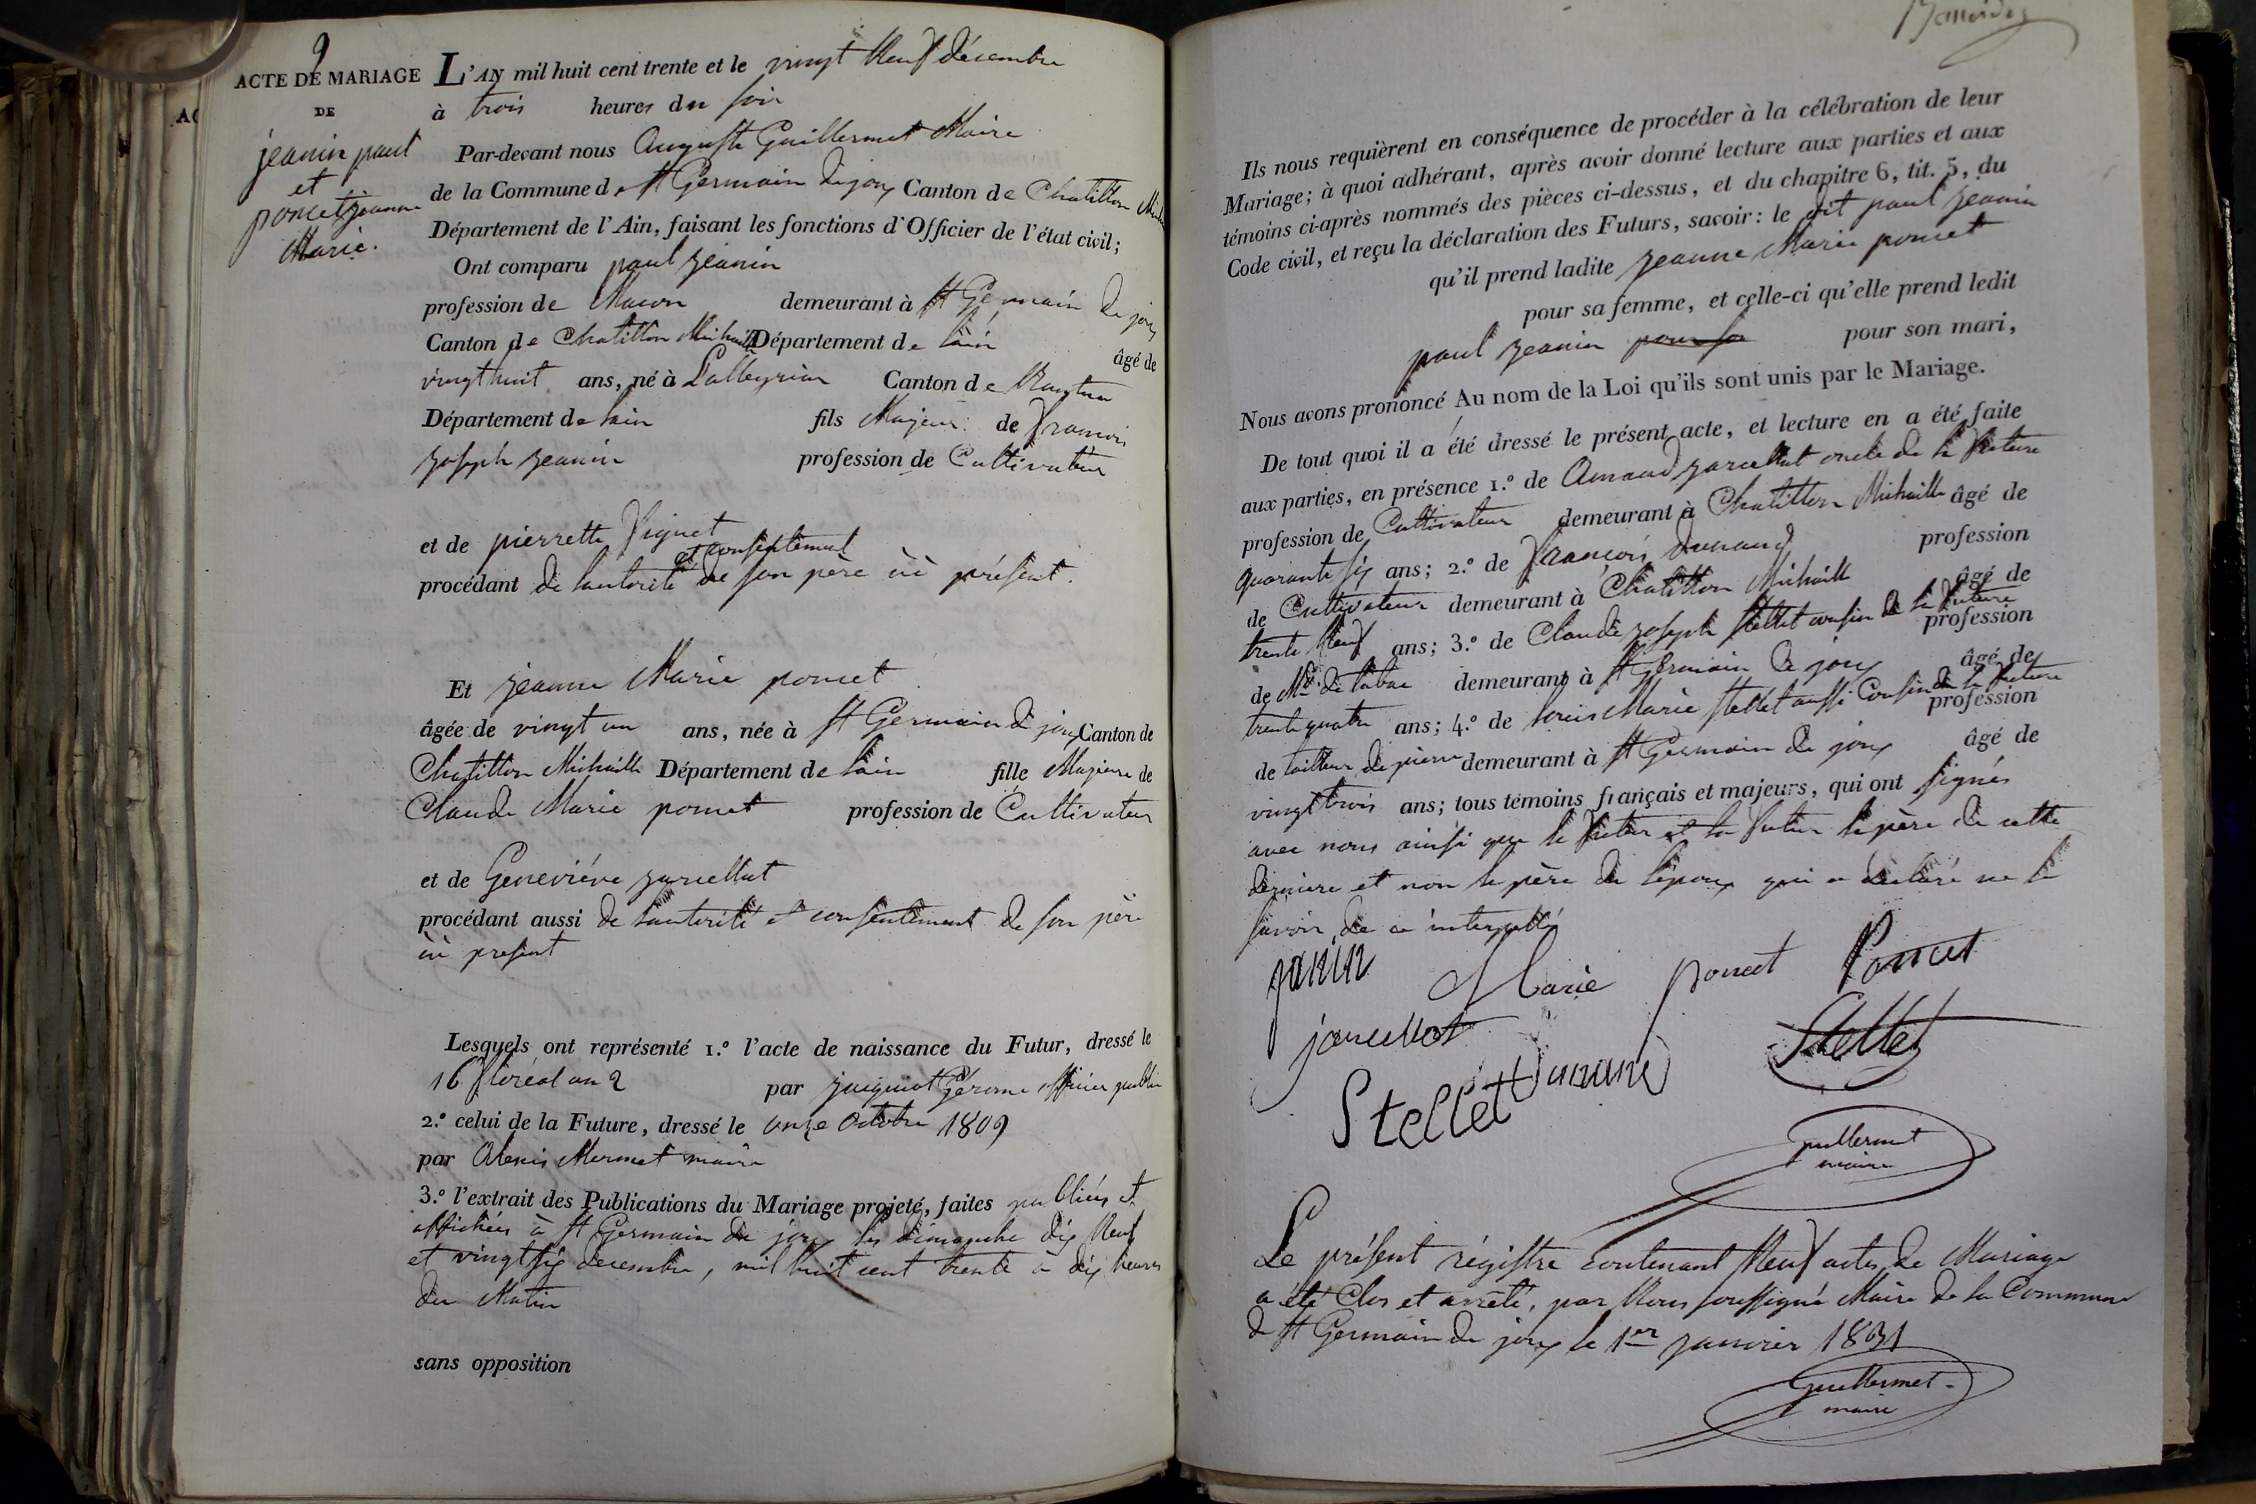 9
ACTE DE MARIAGE
DE
jeanin paul
et
poncet jeanne
Marie.
L'AN mil huit cent trente et le vingt Neuf décembre
à trois heures du soir
Par-devant nous Auguste Guillermet Maire
de la Commune de St Germain de joux Canton de Chatillon Michaille
Département de l'Ain, faisant les fonctions d'Officier de l'état civil;
Ont comparu paul jeanin
profession de Macon demeurant à St Germain de joux
Canton de Chatillon Michaille Département de lain âgé de
vingt huit ans, né à Lalleyriat Canton de Nantua
Département de lain fils Majeur de francois
joseph jeanin profession de Cultivateur
et de pierrette Vignet
procédant de lautorité et consentement de son père ici présent.
Et jeanne Marie poncet
âgée de vingt un ans, née à St Germain de joux Canton de
Chatillon Michaille Département de lain fille Majeure de
Claude Marie poncet profession de Cultivateur
et de Geneviéve jarcellat
procédant aussi de lautorité et consentement de son père
ici present
Lesquels ont représenté 1.º l'acte de naissance du Futur, dressé le
16 floréal an 2 par Gérome officier public
2.º celui de la Future, dressé le onze Octobre 1809
par Alexis Mermet maire
3.º l'extrait des Publications du Mariage projeté, faites publiées et
affichées à St Germain de joux les dimanche dix Neuf
et vingt six decembre, mil huit cent trente a dix heures
du Matin
sans opposition
Ils nous requièrent en conséquence de procéder à la célébration de leur
Mariage; à quoi adhérant, après avoir donné lecture aux parties et aux
témoins ci-après nommés des pièces ci-dessus, et du chapitre 6, tit. 5, du
Code civil, et reçu la déclaration des Futurs, savoir: le dit paul jeanin
qu'il prend ladite jeanne Marie poncet
pour sa femme, et celle-ci qu'elle prend ledit
paul jeanin pour sa pour son mari,
Nous avons prononcé Au nom de la Loi qu'ils sont unis par le Mariage.
De tout quoi il a été dressé le présent acte, et lecture en a été faite
aux parties, en présence 1.º de Amand jarcellat oncle de la future
profession de Cultivateur demeurant à Chatillon Michaille âgé de
quarante six ans; 2.º de françois Dunand profession
de Cultivateur demeurant à Chatillon Michaille âgé de
trente Neuf ans; 3.º de Claude joseph Stellet cousin de la future profession
de Md. de tabac demeurant à St Germain de joux âgé de
trente quatre ans; 4.º de louis Marie Stellet aussi Cousin de la future profession
de tailleur de pierre demeurant à St Germain de joux âgé de
vingt trois ans; tous témoins français et majeurs, qui ont signés
avec nous ainsi que le futur et la future le père de cette
derniere et non le père de lépoux qui a déclaré ne le
savoir de ce interpellé
janin Marie poncet Poncet
jarcellat Stellet
Stellet Dunand
Guillermet
maire
Le présent régistre contenant Neuf actes de Mariage
a été Clos et arrêté, par Nous soussigné Maire de la Commune
de St Germain de joux le 1er janvier 1831
Guillermet
maire